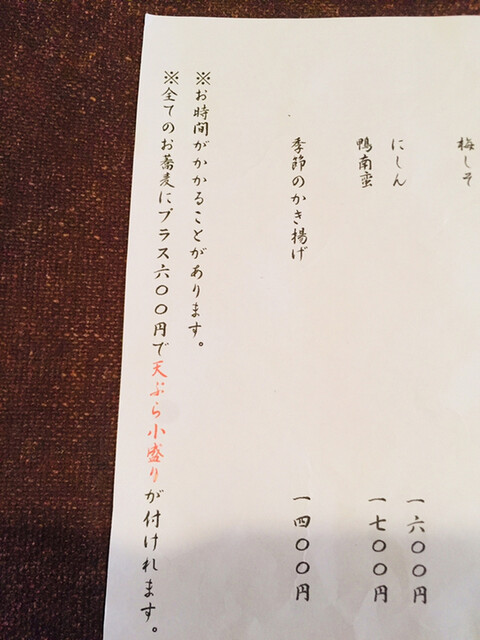 梅しそ
にしん 一六〇〇円
鴨南蛮 一七〇〇円
季節のかき揚げ 一四〇〇円
※お時間がかかることがあります。
※全てのお蕎麦にプラス六〇〇円で天ぷら小盛りが付けれます。